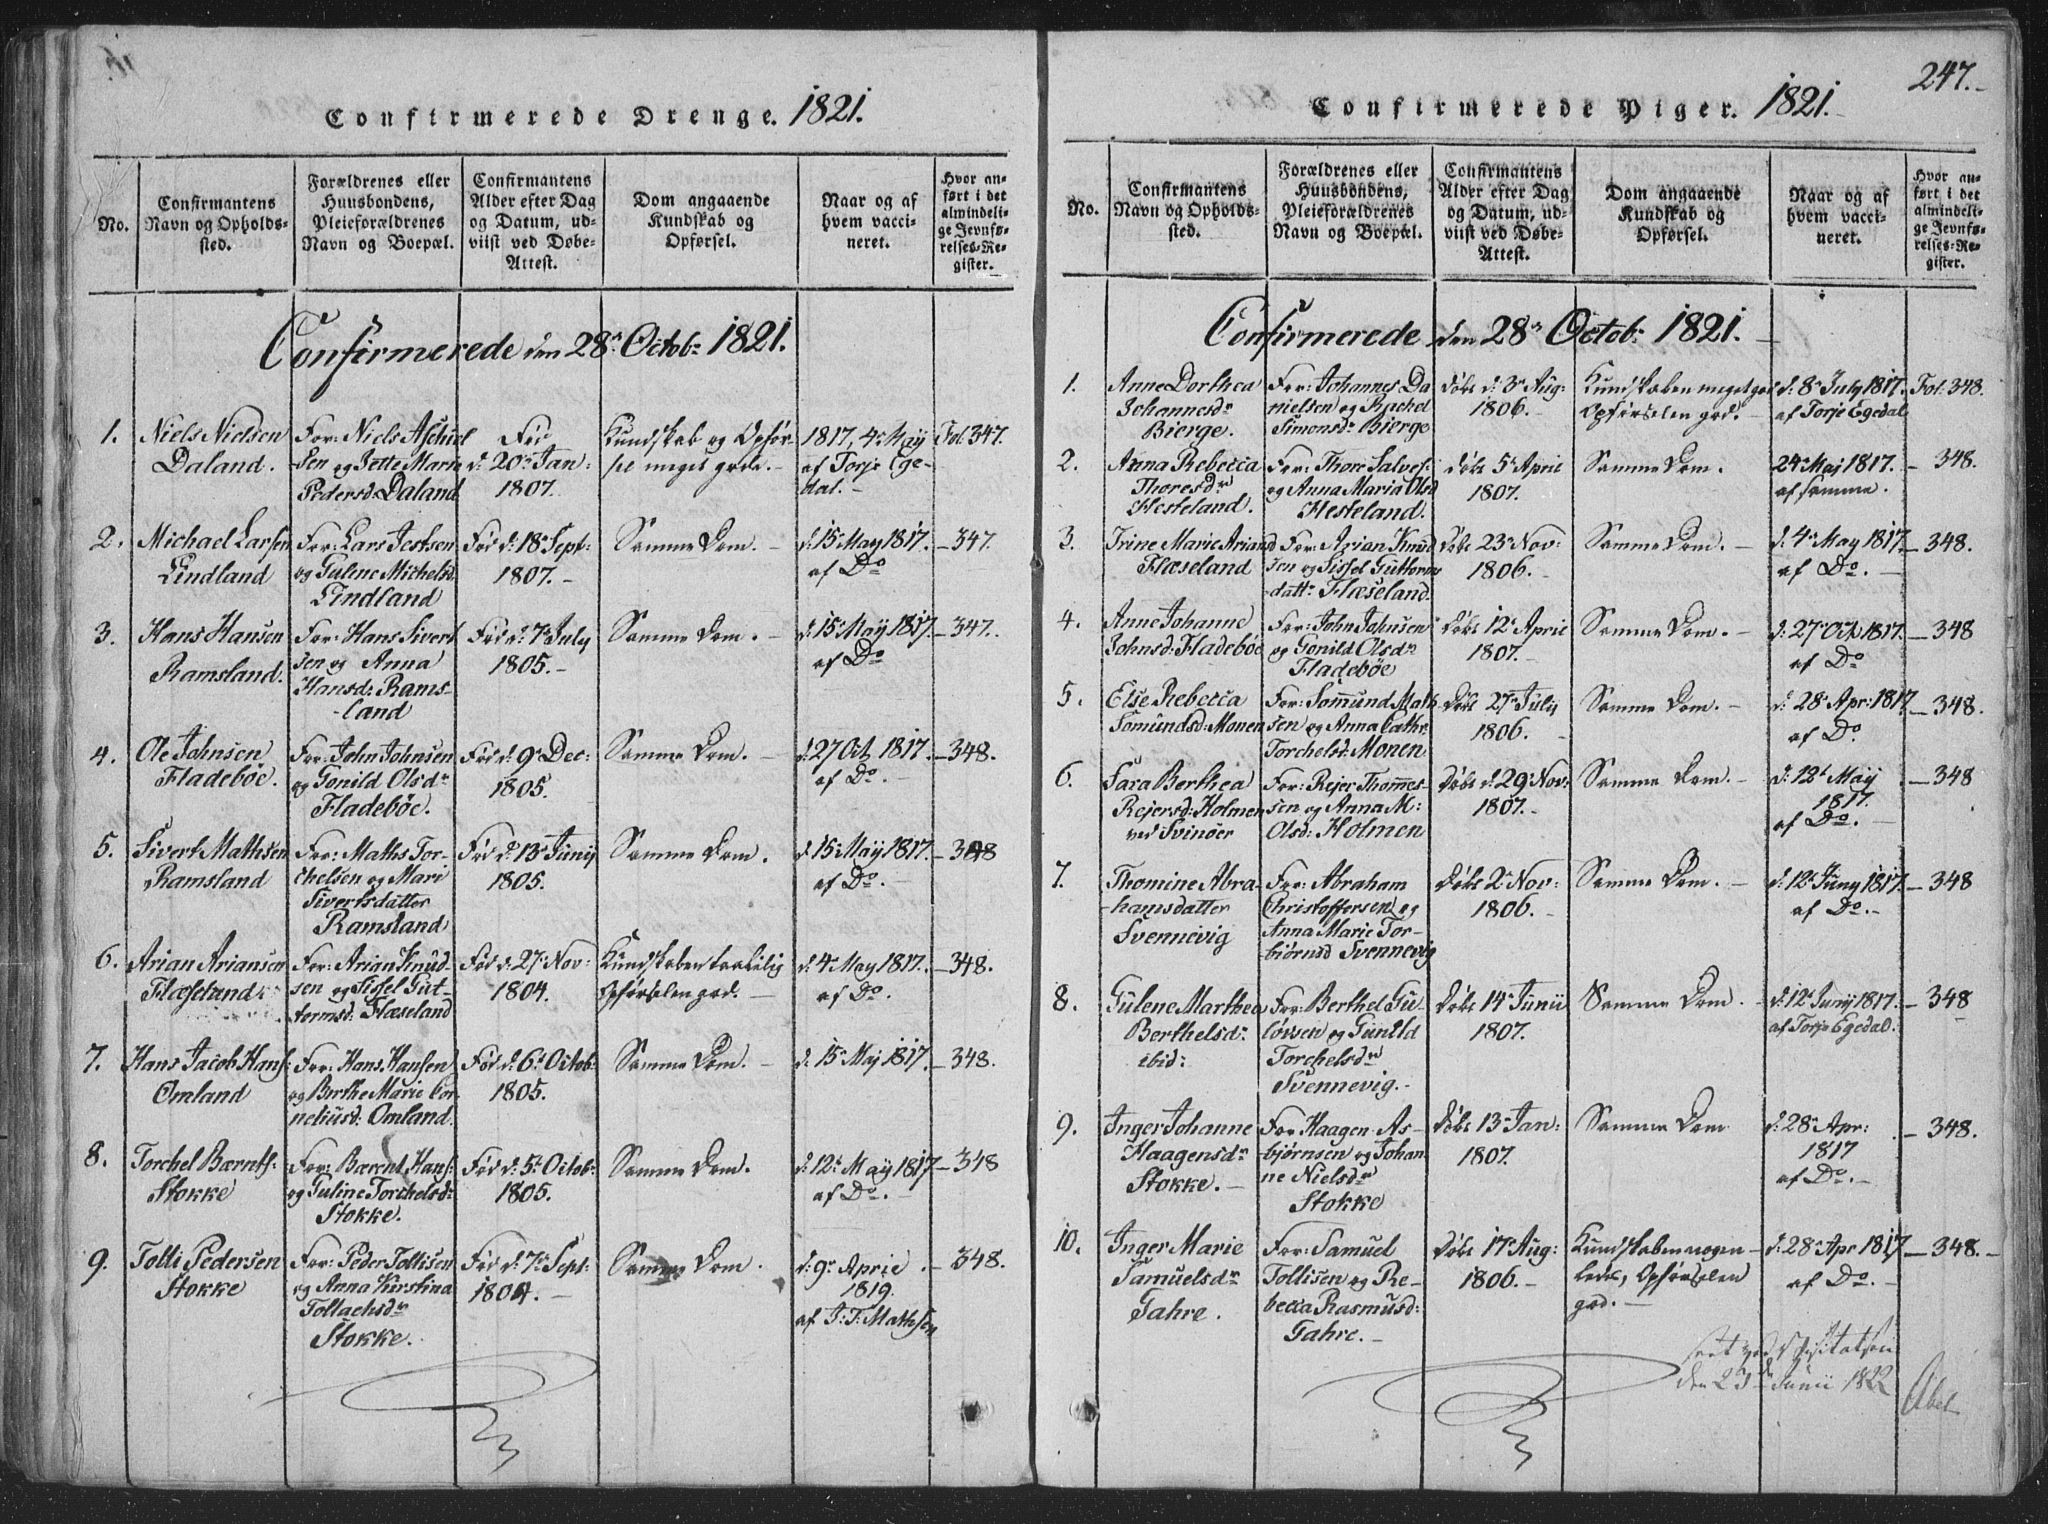 Confirmerede Drenge. 1821.
No.
Confirmantens
Navn og Opholds-
sted.
Forældrenes eller
Huusbondens,
Pleieforældrenes
Navn og Boepæl.
Confirmantens
Alder efter Dag
og Datum, ud-
viist ved Døbe-
Attest.
Dom angaaende
Kundskab og
Opførsel.
Naar og af
hvem vacci-
neret.
Hvor an-
ført i det
almindeli-
ge Jevnfø-
relses-Re-
gister.
Confirmerede den 28n Octobr 1821.
1.
Niels Nielsen
Daland.
For: Niels Aschuel
sen og Jette Marie
Pedersd: Daland
Fød
d: 20n Jan:
1807.
Kundskab og Opfør-
sel meget gode.
1817, 4n May
af Torje Ege-
dal.
Fol. 347.
2.
Michael Larsen
Lindland
For: Lars Jestsen
og Guline Michelsd.
Lindland
Fød d: 18n Sept:
1807.
Samme Dom.
d: 15n May 1817.
af Do
347.
3.
Hans Hansen
Ramsland.
For: Hans Sivert
sen og Anna
Hansd: Rams-
land
Fød d: 7n July
1805.
Samme Dom.
d: 15n May 1817.
af Do
347.
4.
Ole Johnsen
Fladebøe.
For: John Johnsen
og Gonild Olsdr
Fladebøe.
Fød d: 9n Dec:
1805.
Samme Dom.
d: 27 Oct 1817.
af Do.
348.
5.
Sivert Mathsen
Ramsland
For: Maths Tor-
chelsen og Mari
Sivertsdatter
Ramsland
Fød d: 13n Junij
1805.
Samme Dom.
d: 15n May 1817.
af Do.
348
6.
Arian Ariansen
Flæseland.
For: Arian Knud-
sen og Sissel Gut-
tormsd: Flæseland
Fød d: 27n Nov:
1804.
Kundskaben taalelig
Opførselen god.
d: 4n May 1817.
af Do.
348.
7.
Hans Jacob Hans:
Omland
For: Hans Hansen
og Berthe Marie Cor
neliusd: Omland.
Fød d: 6n Octob:
1805.
Samme Dom.
d: 15n Maj 1817.
348.
8.
Torchel Bærnts:
Stokke
For: Bærent Hans:
og Guline Torchelsd:
Stokke.
Fød d: 5n Octob:
1805.
Samme Dom.
d: 12n May 1817
af Do.
348
9.
Tolli Pedersen
Stokke
For: Peder Tollisen
og Anna Kirstina
Tollachsdr
Stokke.
Fød d: 7n Sept:
1804.
Samme Dom.
d: 9n Aprie
1819.
af J: T: Mathsen
348.
247.
Confirmerede Piger. 1821.
No.
Confirmantens
Navn og Opholds-
sted.
Forældrenes eller
Huusbondens,
Pleieforældrenes
Navn og Boepæl.
Confirmantens
Alder efter Dag
og Datum, ud-
viist ved Døbe-
Attest.
Dom angaaende
Kundskab og
Opførsel.
Naar og af
hvem vacci-
neret.
Hvor an-
ført i det
almindeli-
ge Jevnfø-
relses-Re-
gister.
Confirmerede den 28n Octob: 1821.
1.
Anne Dorthea
Johannesdr
Bierge.
For: Johannes Da
nielsen og Rachel
Simonsdr Bierge
Døbt d: 3n Aug:
1806.
Kundskaben meget god
Opførselen god.
d: 8n July 1817.
af Torje Egedal
Fol. 348.
2.
Anna Rebecca
Thoresdr
Hesteland.
For: Thore Salves:
og Anna Maria Olsd
Hesteland.
Døbt 5n April
1807.
Samme Dom.
24n Maj 1817.
af samme.
348.
3.
Trine Marie Ariansd
Flæseland
For: Arian Knud
sen og Sissel Guttorms
datt: Flæseland.
Døbt 23n Nov:
1806.
Samme Dom.
d: 4n May 1817
af Do.
348.
4.
Anne Johanne
Johnsd: Fladebøe
For: John Johnsen
og Gonild Olsdr
Fladebøe
Døbt 12n April
1807.
Samme Dom.
d: 27n Oct 1817.
af Do
348
5.
Else Rebecca
Tomundsd: Monen
For: Tommund Math
sen og Anna Cathr.
Torchelsd: Monen
Døbt 27n July
1806.
Samme Dom.
d: 28n Apr: 1817
af Do.
348.
6.
Sara Berthea
Rejersd: Holmen
ved Svinøer
For: Rejer Thommes-
sen og Anna M:
Olsd: Holmen
Døbt d: 29n Nov:
1807.
Samme Dom.
d: 12n May
1817.
af Do.
348
7.
Thomine Abra-
hamsdatter
Svennevig
For: Abraham
Christoffersen og
Anna Marie Tor-
biørnsd Svennevig
Døbt 2n Nov:
1806.
Samme Dom.
d: 12n Juny 1817.
af Do.
348
8.
Gulene Marthea
Berthelsdr
ibid:
For: Berthel Gu-
lovsen og Gunild
Torchelsdr
Svennevig.
Døbt 14n Junii
1807.
Samme Dom.
d: 12n Junij 1817.
af Torje Egedal.
348
9.
Inger Johanne
Haagensdr
Stokke.
For Haagen As-
bjørnsen og Johan
ne Nielsdr
Stokke
Døbt 13n Jan:
1807.
Samme Dom
d: 28n Apr:
1817
af Do.
348.
10.
Inger Marie
Samuelsdr
Gahre.
For: Samuel
Tollisen og Re-
becca Rasmusd:
Gahre.
Døbt 17n Aug:
1806.
Kundskaben nogen-
ledes, Opførselen
god.
d: 28n Apr 1817
af Do.
348.
seet ved Visitatsen
den 23d Junii 1822
Abel